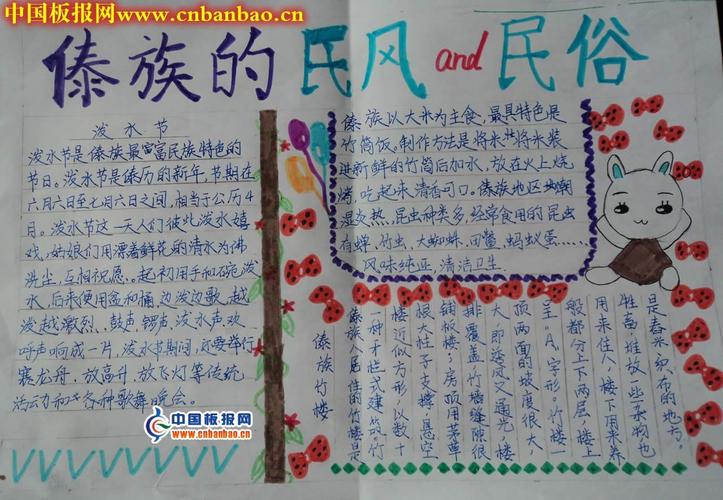 中国板报网
www.cnbanbao.cn
傣族的民风and民俗
泼水节
泼水节是傣族最富民族特色的
节日。泼水节是傣历的新年,节期在
六月六日至七月六日之间,相当于公历4
月。泼水节这一天人们彼此泼水嬉
戏,姑娘们用漂着鲜花的清水为佛
洗尘,互相祝愿。起初用手和碗泼
水,后来便用盆和桶,边泼边歌,越
泼越激烈、鼓声、锣声、泼水声、欢
呼声响成一片,泼水节期间,还要举行
赛龙舟,放高升,放飞灯等传统
活动和各种歌舞晚会。
傣族以大米为主食,最具特色是
竹筒饭。制作方法是将米装
进新鲜的竹筒后加水,放在火上烧
烤,吃起来清香可口。傣族地区
湿炎热,昆虫种类多,经常食用的昆虫
有蝉,竹虫,大蜘蛛,田鳖,蚂蚁蛋……
风味纯正,清洁卫生
傣族竹楼
傣族人居住的竹楼是
一种干栏式建筑。竹
楼近似方形,以数十
根大柱子支撑,悬空
铺板楼;房顶用茅草
排覆盖,竹墙缝隙很
大,即透风又通光;楼
顶两面的坡度很大,
呈"A"字形。竹楼一
般都分上下两层,楼上
用来住人,楼下用来养
牲畜,堆放一些杂物也
是舂米、织布的地方。
中国板报网
www.cnbanbao.cn